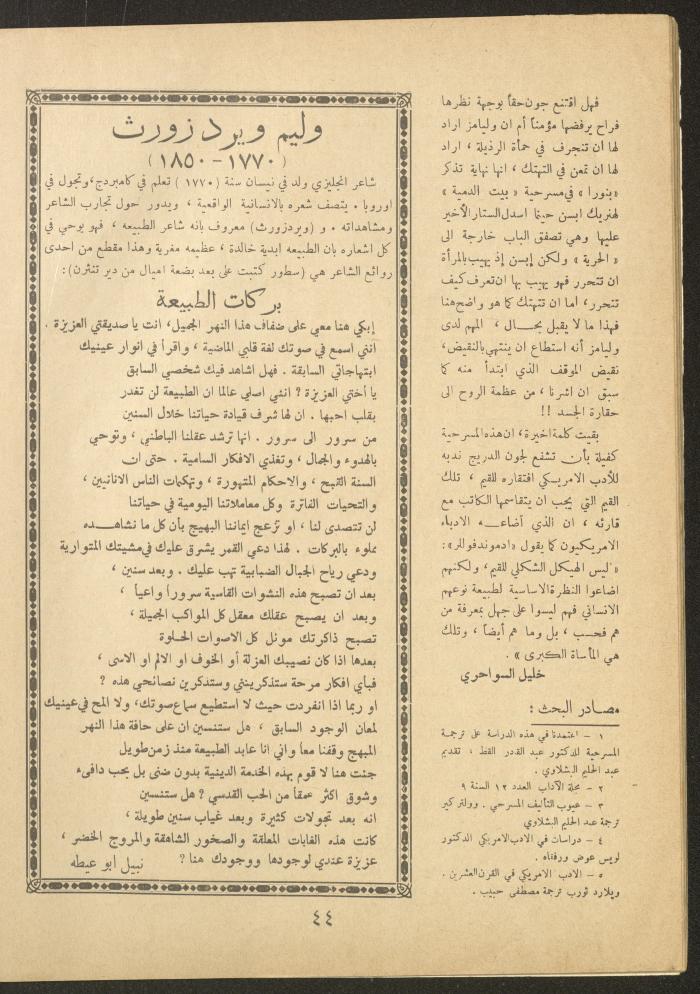 فهل اقتنع جون حقاً بوجهة نظرها
فراح يرفضها مؤمناً أم ان وليامز اراد
لها ان تنجرف في حمأة الرذيلة ، اراد
لها ان تمعن في التهتك ، انها نهاية تذكر
«بنورا» في مسرحية «بيت الدمية»
لهنريك ابسن حينما اسدل الستار الأخير
عليها وهي تصفق الباب خارجة الى
«الحرية» ولكن إبسن إذ يهيب بالمرأة
ان تتحرر فهو يهيب بها ان تعرف كيف
تتحرر، أما ان تتهتك كما هو واضح هنا
فهذا ما لا يقبل بحال ، المهم لدى
وليامز أنه استطاع ان ينتهي بالنقيض،
نقيض الموقف الذي ابتدأ منه كما
سبق ان اشرنا ، من عظمة الروح الى
حقارة الجسد !!
بقيت كلمة اخيرة ، ان هذه المسرحية
كفيلة بأن تشفع لجون الدريج ندبه
للأدب الامريكي افتقاره للقيم ، تلك
القيم التي يجب ان يتقاسمها الكاتب مع
قارئه ، ان الذي أضاعه الادباء
الامريكيون كما يقول «ادموند فوللر»:
«ليس الهيكل الشكلي للقيم، ولكنهم
اضاعوا النظرة الاساسية لطبيعة نوعهم
الانساني فهم ليسوا على جهل بمعرفة من
هم فحسب ، بل وما هم أيضاً ، وتلك
هي المأساة الكبرى» .
خليل السواحري
مصادر البحث :
١ – اعتمدنا في هذه الدراسة على ترجمة
المسرحية للدكتور عبد القادر القط ، تقديم
عبد الحليم البشلاوي .
٢ – مجلة الآداب العدد ١٢ السنة ٩
٣ – عيوب التأليف المسرحي . وولتر كير
ترجمة عبد الحليم البشلاوي
٤ – دراسات في الادب الامريكي الدكتور
لويس عوض ورفقاه .
٥ – الادب الامريكي في القرن العشرين .
ويلارد ثورب ترجمة مصطفى حبيب .
وليم ويردزورث
(١٧٧٠ – ١٨٥٠)
شاعر انجليزي ولد في نيسان سنة (١٧٧٠) تعلم في كامبردج، وتجول في
اوروبا . يتصف شعره بالانسانية الواقعية ، ويدور حول تجارب الشاعر
ومشاهداته . و (ويردزورث) معروف بانه شاعر الطبيعه ، فهو يوحي في
كل اشعاره بان الطبيعه ابدية خالدة ، عظيمه مغرية وهذا مقطع من احدى
روائع الشاعر هي (سطور كتبت على بعد بضعة اميال من دير تنثرن):
بركات الطبيعة
إبكي هنا معي على ضفاف هذا النهر الجميل، انت يا صديقتي العزيزة .
انني اسمع في صوتك لغة قلبي الماضية ، واقرأ في انوار عينيك
ابتهاجاتي السابقة . فهل اشاهد فيك شخصي السابق
يا أختي العزيزة ؟ انني اصلي عالما ان الطبيعة لن تغدر
بقلب احبها . ان لها شرف قيادة حياتنا خلال السنين
من سرور الى سرور . انها ترشد عقلنا الباطني ، وتوحي
بالهدوء والجمال ، وتغذي الافكار السامية . حتى ان
السنة القبح ، والاحكام المتهورة ، وتهكمات الناس الانانيين ،
والتحيات الفاترة وكل معاملاتنا اليومية في حياتنا
لن تتصدى لنا ، او تزعج ايماننا البهيج بأن كل ما نشاهده
مملوء بالبركات . لهذا دعي القمر يشرق عليك في مشيتك المتوارية
ودعي رياح الجبال الضبابية تهب عليك . وبعد سنين ،
بعد ان تصبح هذه النشوات القاسية سروراً واعياً ،
وبعد ان يصبح عقلك معقل كل المواكب الجميلة ،
تصبح ذاكرتك موئل كل الاصوات الحلوة
بعدها اذا كان نصيبك العزلة أو الخوف او الالم او الاسى ،
فبأي افكار مرحة ستذكرينني وستذكرين نصائحي هذه ؟
او ربما اذا انفردت حيث لا استطيع سماع صوتك، ولا المح في عينيك
لمعان الوجود السابق ، هل ستنسين ان على حافة هذا النهر
المبهج وقفنا معاً واني انا عابد الطبيعة منذ زمن طويل
جئت هنا لا قوم بهذه الخدمة الدينية بدون ضنى بل بحب دافىء
وشوق اكثر عمقاً من الحب القدسي ؟ هل ستنسين
انه بعد تجولات كثيرة وبعد غياب سنين طويلة ،
كانت هذه الغابات المعلقة والصخور الشاهقة والمروج الخضر ،
عزيزة عندي لوجودها ووجودك هنا ؟
نبيل ابو عيطه
٤٤